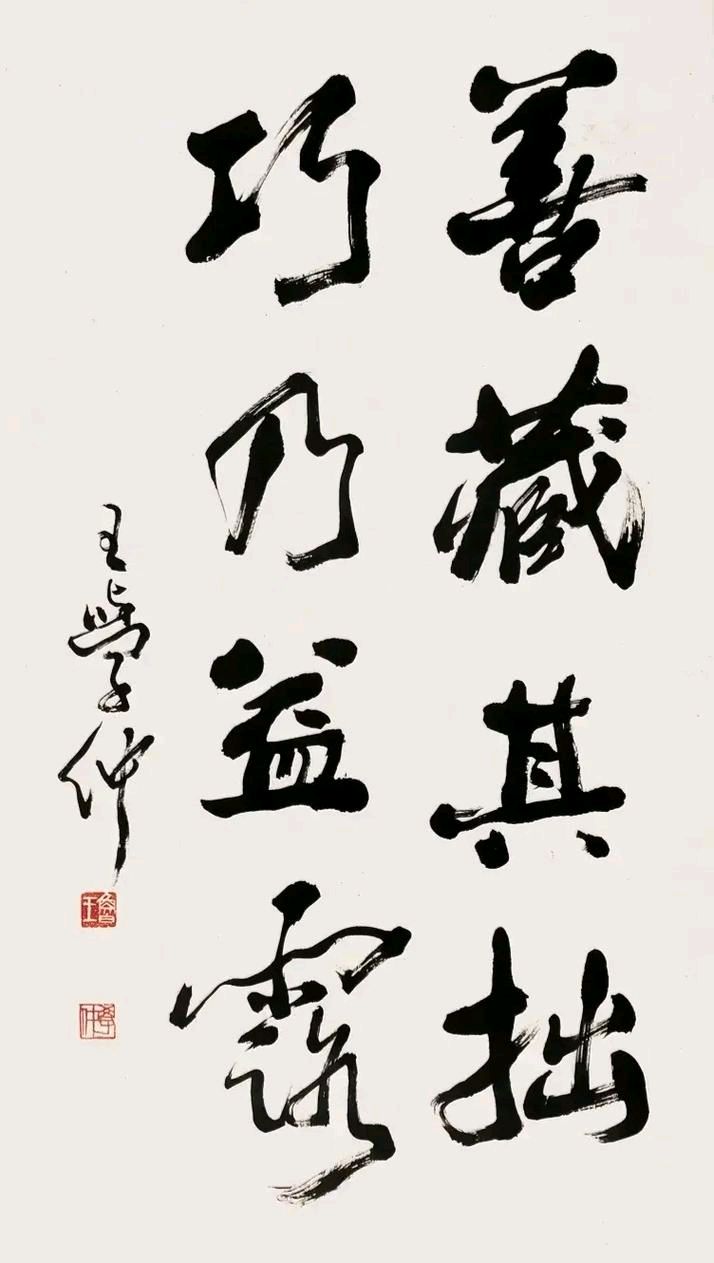 善藏其拙
巧乃益露
王學仲